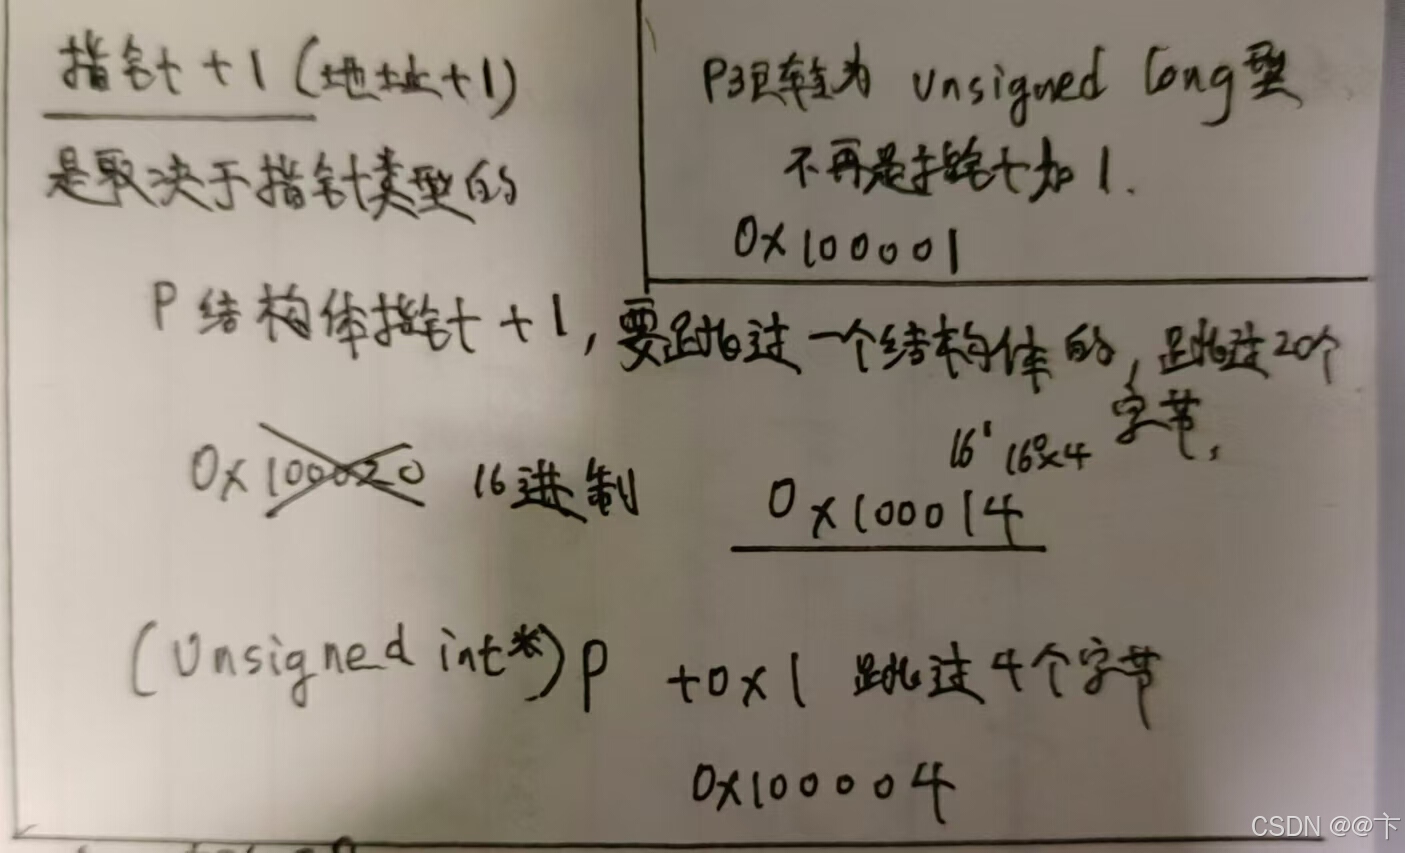 指针+1(地址+1)
是取决于指针类型的
P强转为 unsigned long型
不再是指针加1.
0x100001
P结构体指针+1,要跳过一个结构体的,跳过20个
字节,
0x100020 16进制
16¹ 16⁰x4
0x100014
(unsigned int*)p +0x1 跳过4个字节
0x100004
CSDN @@卞